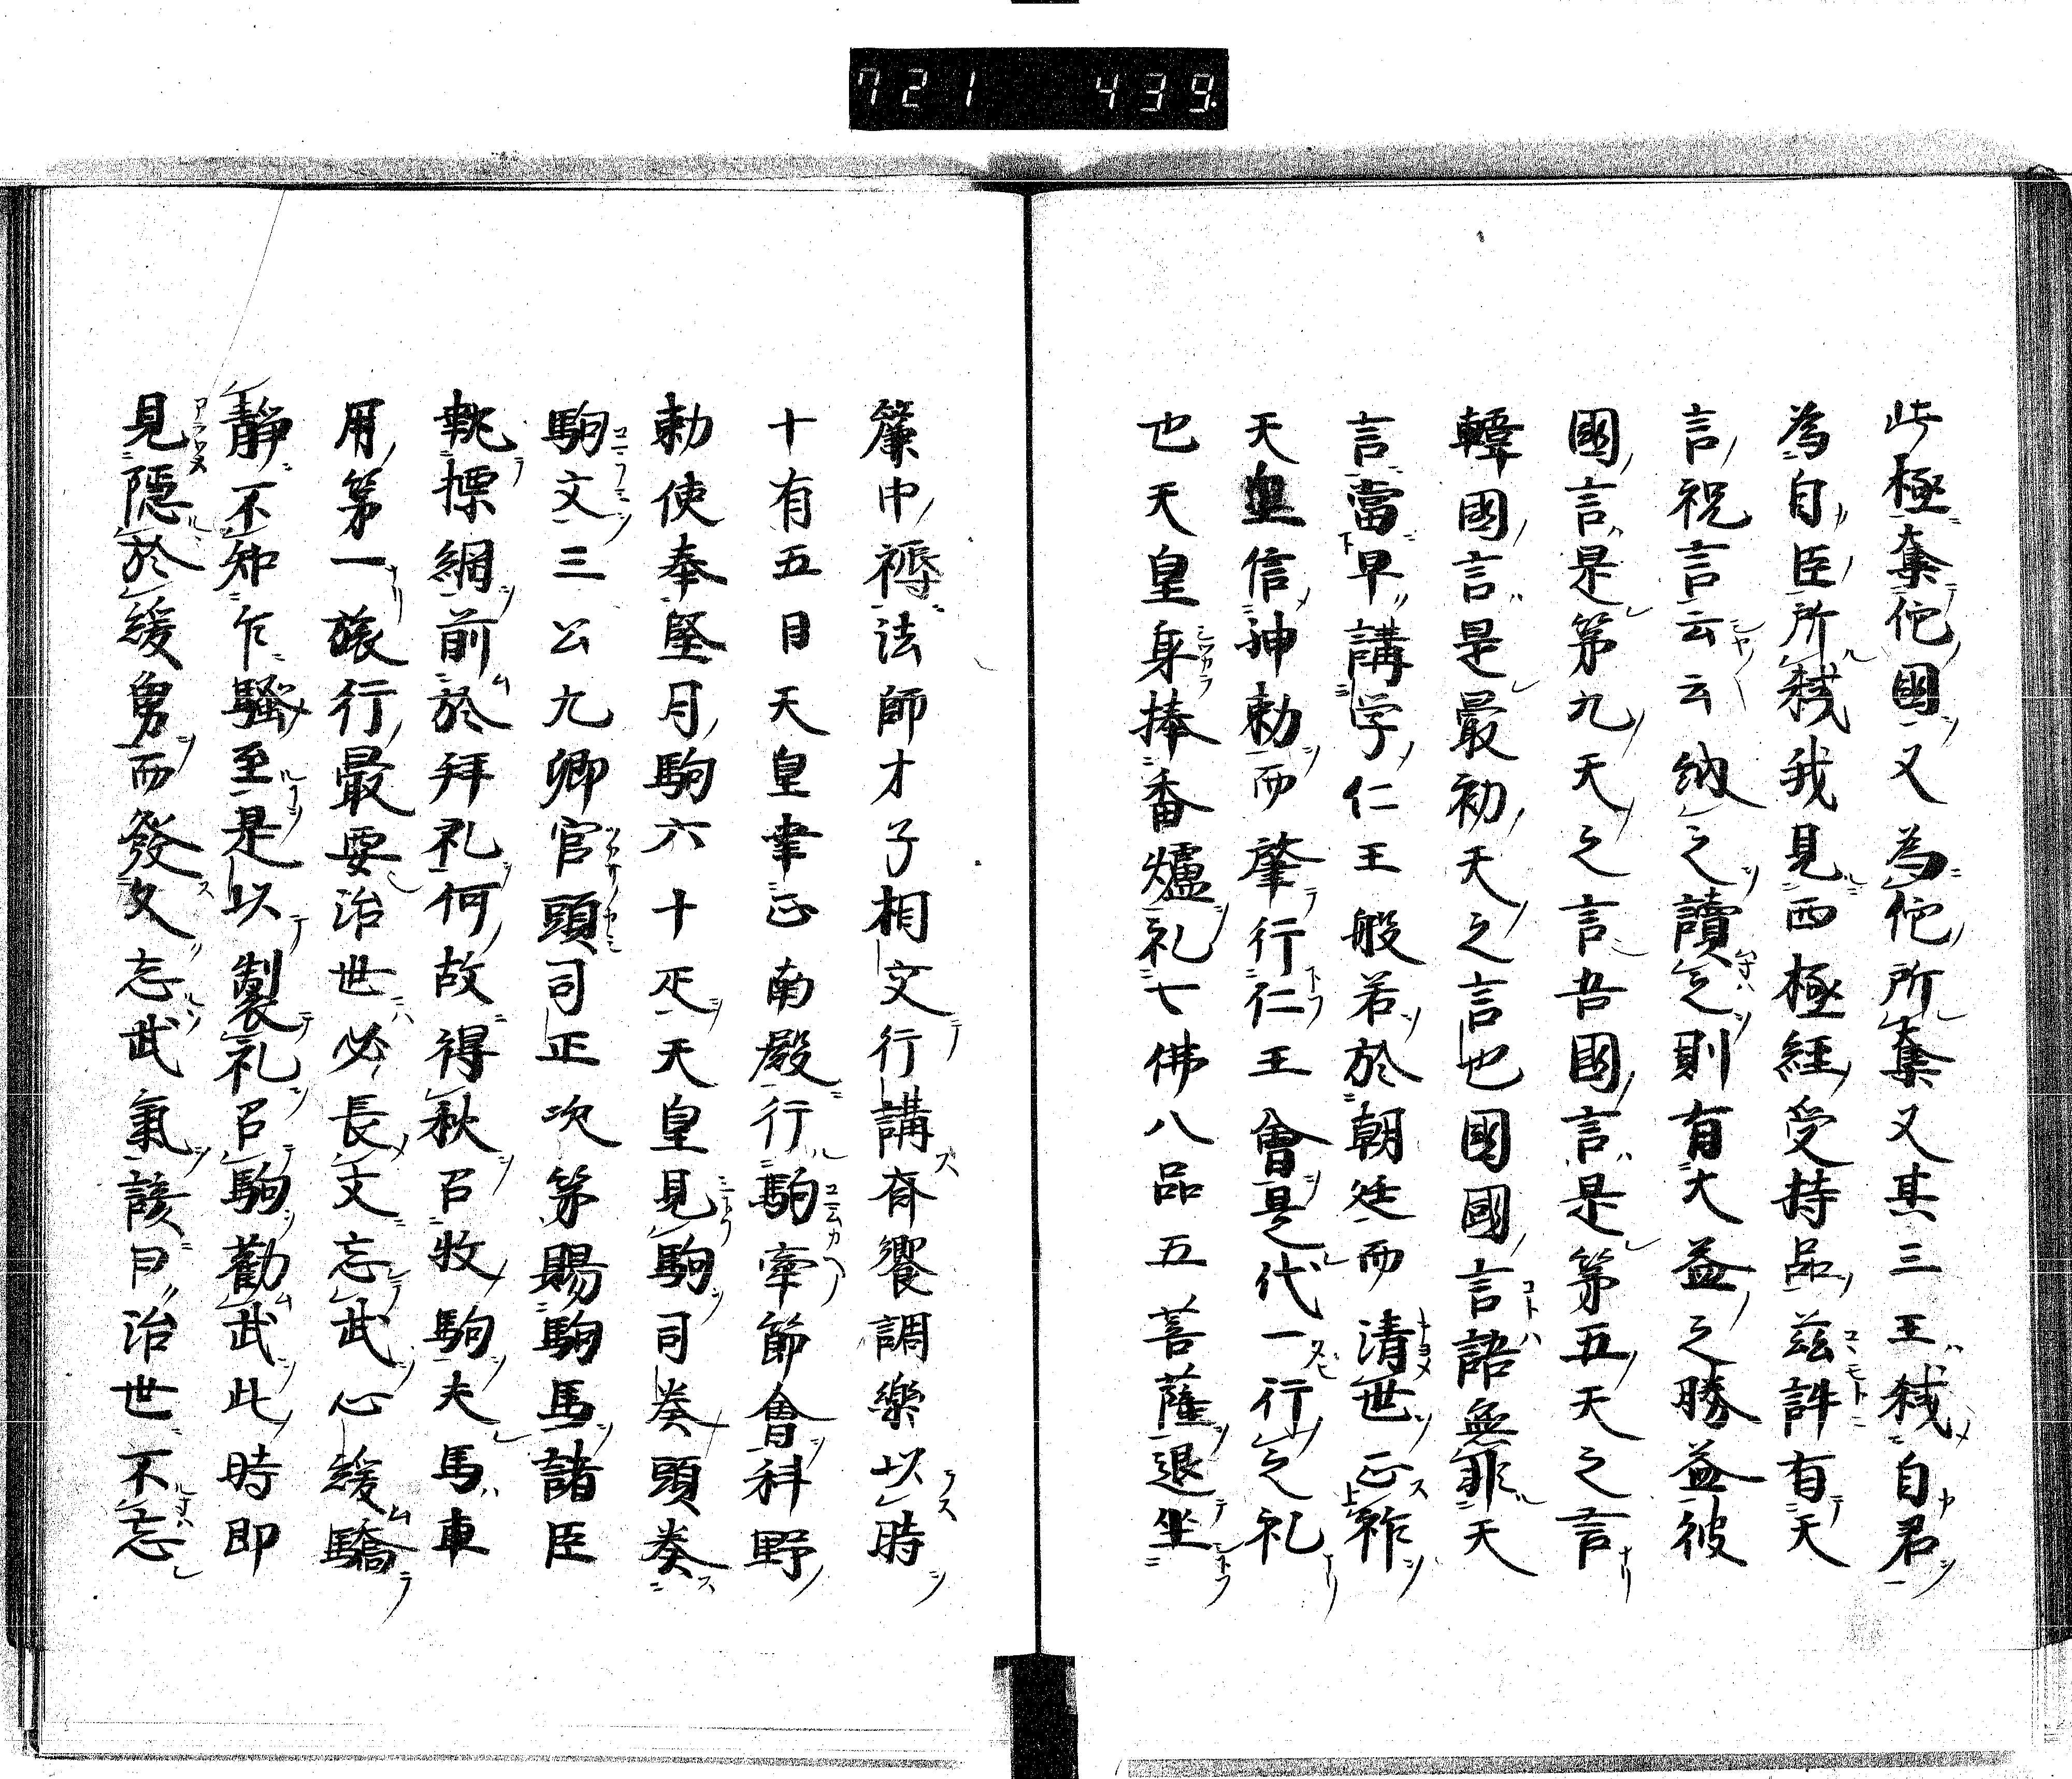 721 439
此極奪佗國又為佗所奪又其三王弑自君
為自臣所弑我見西極經受持品茲許有天
言祝言云云納之讀之則有大益之勝益彼
國言是第九天之言吾國言是第五天之言
韓國言是最初天之言也國國言語無非天
言當早講学仁王般若於朝廷而清世正祚
天皇信神勅而肇行仁王會是代一行之礼
也天皇身捧香爐礼七佛八品五菩薩退坐
簾中褥法師才子相文行講斉饗調樂以時
十有五日天皇幸正南殿行駒牽節會科野
勅使奉堅月駒六十疋天皇見駒司奏頭奏
駒文三公九卿官頭司正次第賜駒馬諸臣
執標網前於拜礼何故得秋召牧駒夫馬車
用第一旅行最要治世必長文忘武心緩驕
靜不知乍騒至是以製礼召駒勸武此時即
見隱於緩勇而發文忘武氣諺曰治世不忘